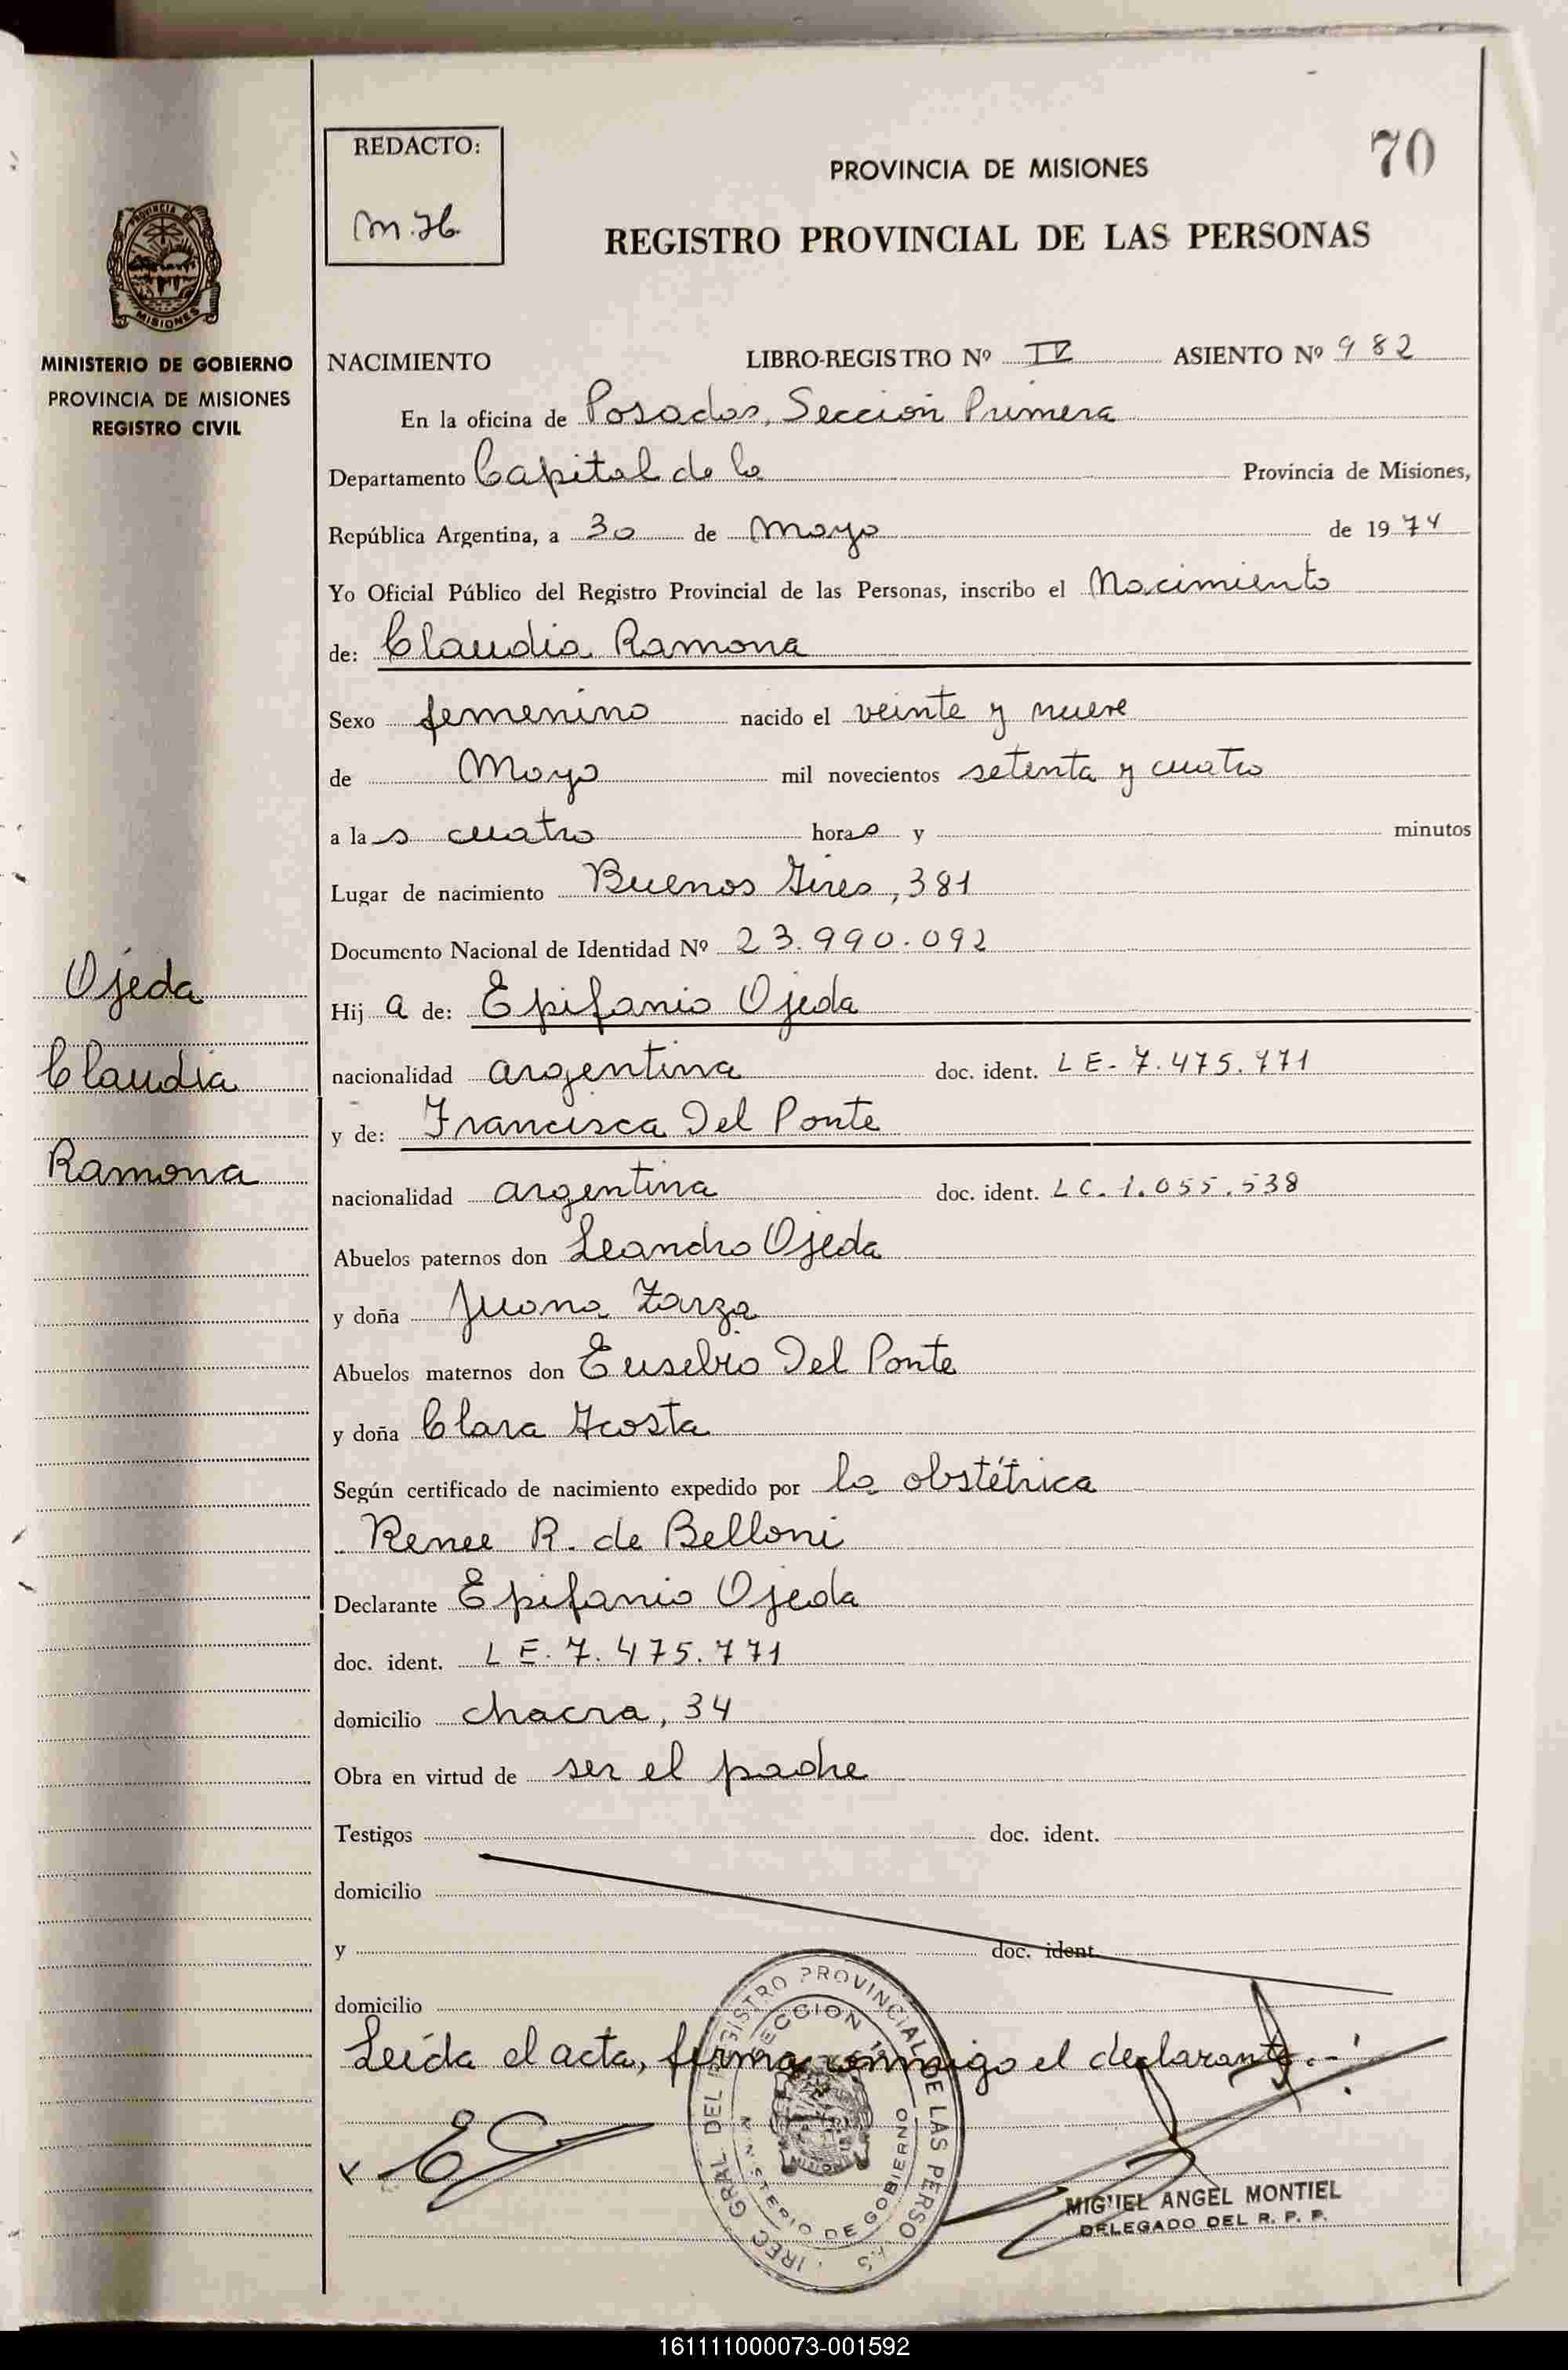 70
REDACTO:
PROVINCIA DE MISIONES
REGISTRO PROVINCIAL DE LAS PERSONAS
PROVINCIA DE
MISIONES
MINISTERIO DE GOBIERNO
PROVINCIA DE MISIONES
REGISTRO CIVIL
NACIMIENTO LIBRO-REGISTRO Nº IV ASIENTO Nº 982
En la oficina de Posadas, Sección Primera
Departamento Capital de la Provincia de Misiones,
República Argentina, a 30 de Mayo de 1974
Yo Oficial Público del Registro Provincial de las Personas, inscribo el Nacimiento
de: Claudia Ramona
Sexo femenino nacido el veinte y nueve
de Mayo mil novecientos setenta y cuatro
a las cuatro horas y minutos
Lugar de nacimiento Buenos Aires, 381
Documento Nacional de Identidad Nº 23.990.092
Ojeda
Claudia
Ramona
Hija de: Epifanio Ojeda
nacionalidad argentina doc. ident. LE- 7.475.771
y de: Francisca Del Ponte
nacionalidad argentina doc. ident. LC. 1.055.538
Abuelos paternos don Leandro Ojeda
y doña Juana Zarza
Abuelos maternos don Eusebio Del Ponte
y doña Clara Acosta
Según certificado de nacimiento expedido por la obstétrica
Renee R. de Belloni
Declarante Epifanio Ojeda
doc. ident. LE. 7.475.771
domicilio chacra, 34
Obra en virtud de ser el padre
Testigos doc. ident.
domicilio
y doc. ident.
domicilio
Leída el acta, firma conmigo el declarante.-
MINISTERIO DE GOBIERNO
MIGUEL ANGEL MONTIEL
DELEGADO DEL R. P. P.
161111000073-001592